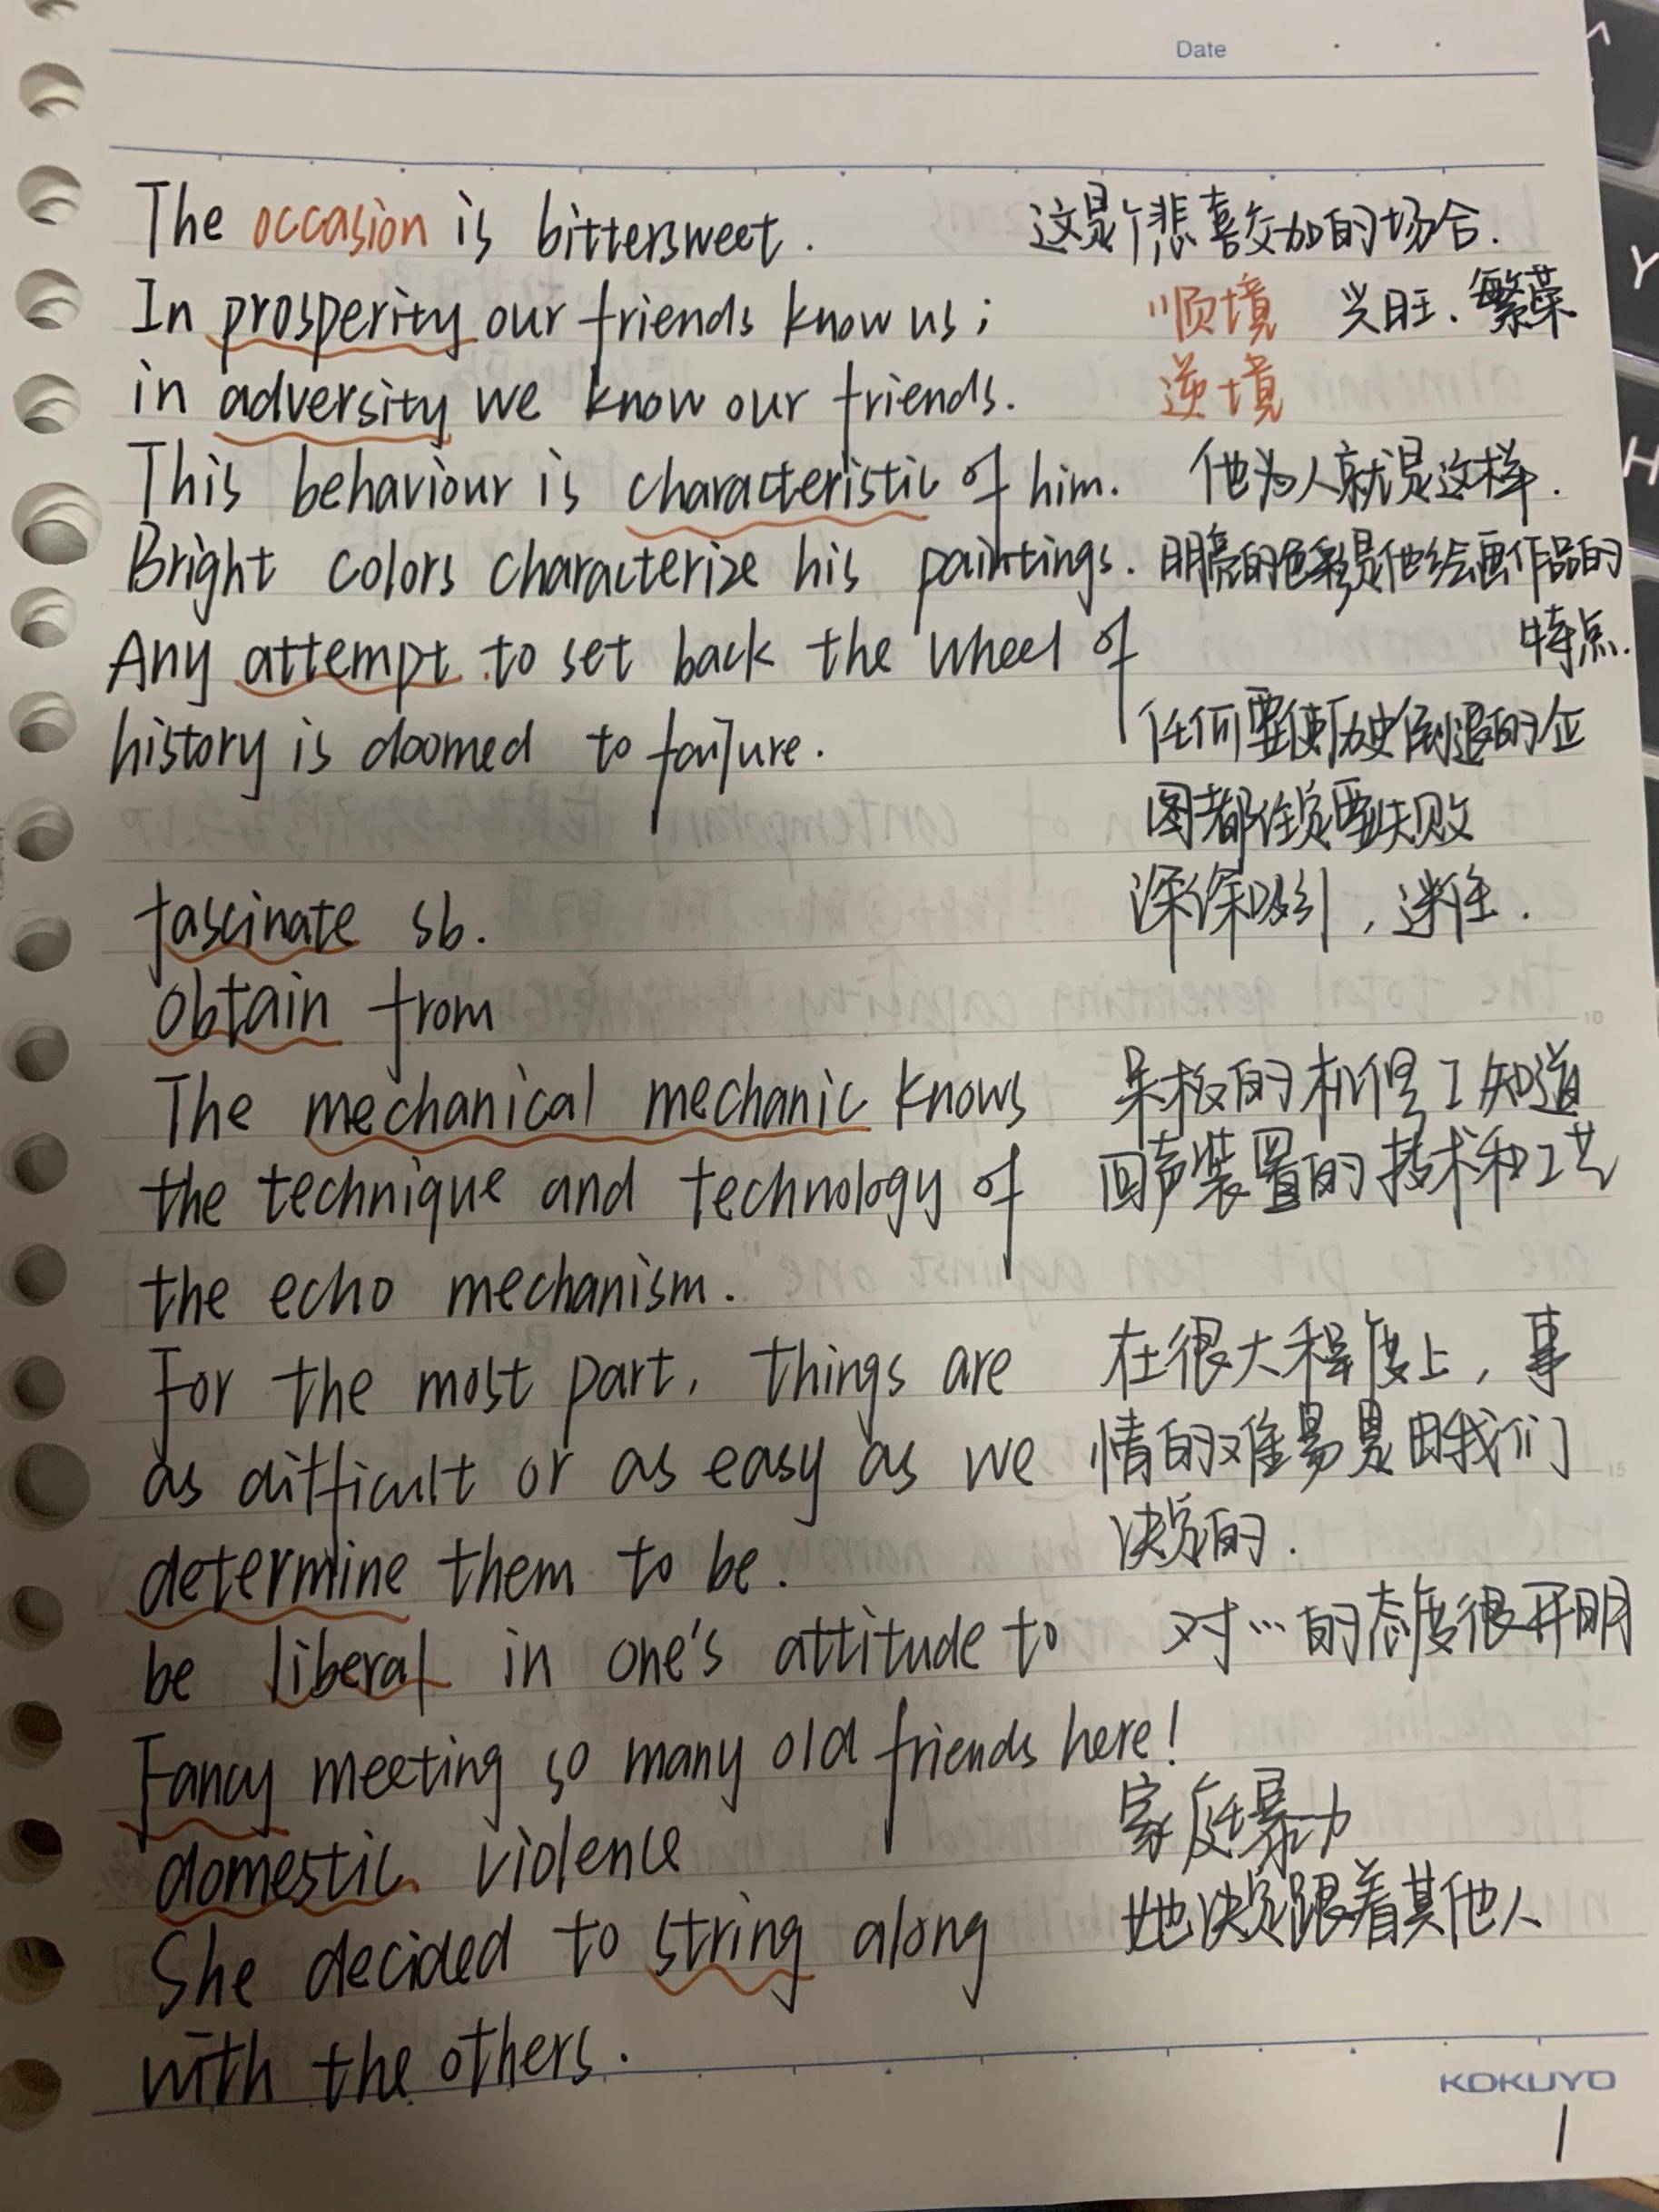 Date
The occasion is bittersweet. 这是个悲喜交加的场合.
In prosperity our friends know us; 顺境 兴旺.繁荣
in adversity we know our friends. 逆境
This behaviour is characteristic of him. 他为人就是这样.
Bright colors characterize his paintings. 明亮的色彩是他绘画作品的
Any attempt to set back the wheel of 特点.
history is doomed to failure. 任何要使历史倒退的企
图都注定要失败
fascinate sb. 深深吸引,迷住.
obtain from
The mechanical mechanic knows 呆板的机修工知道
the technique and technology of 回声装置的技术和工艺
the echo mechanism.
For the most part, things are 在很大程度上,事
as difficult or as easy as we 情的难易是由我们
determine them to be. 决定的.
be liberal in one's attitude to 对…的态度很开明
Fancy meeting so many old friends here!
domestic violence 家庭暴力
She decided to string along 她决定跟着其他人
with the others.
KOKUYO
1